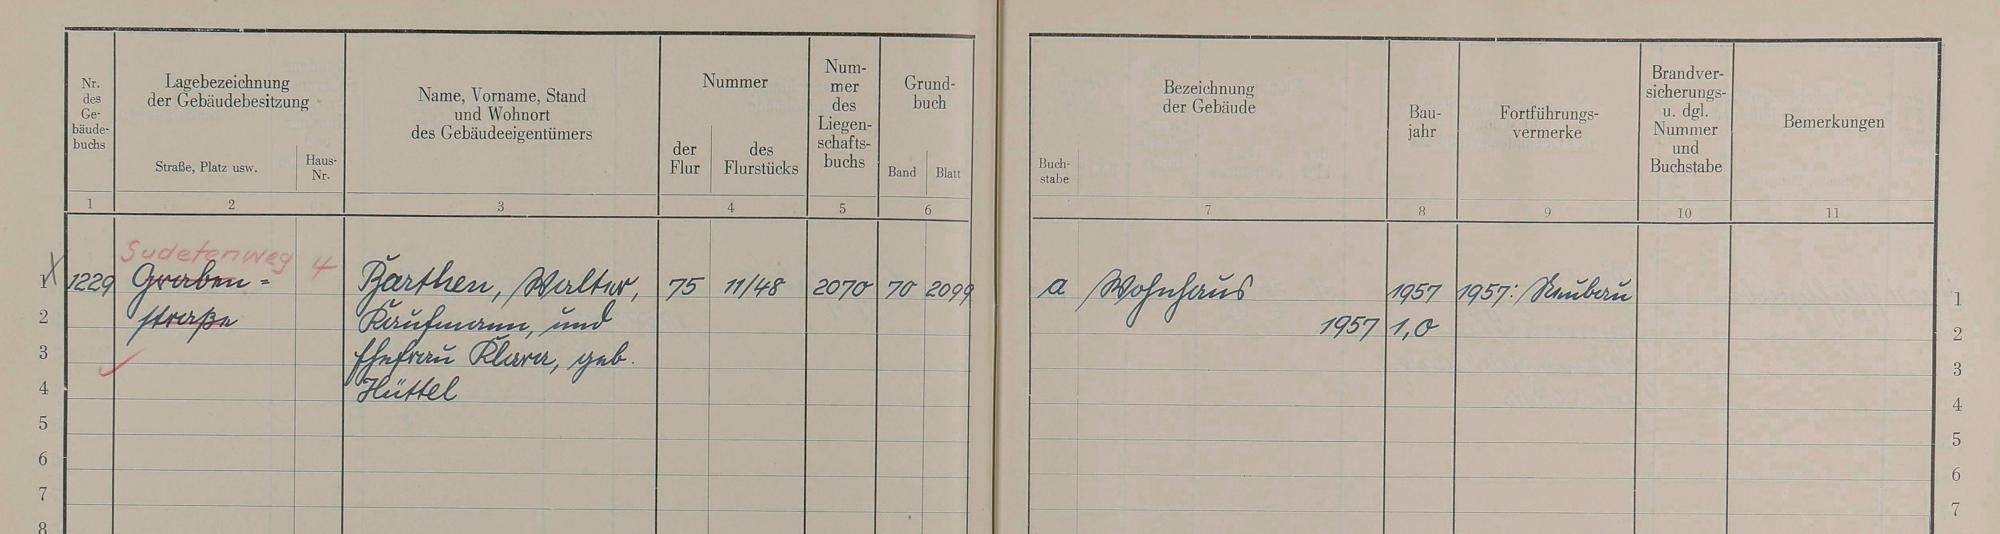 Nr. des Ge- bäude- buchs
Lagebezeichnung der Gebäudebesitzung
Straße, Platz usw.
Haus- Nr.
Name, Vorname, Stand und Wohnort des Gebäudeeigentümers
Nummer
der Flur
des Flurstücks
Num- mer des Liegen- schafts- buchs
Grund- buch
Band
Blatt
Bezeichnung der Gebäude
Buch- stabe
Bau- jahr
Fortführungs- vermerke
Brandver- sicherungs- u. dgl. Nummer und Buchstabe
Bemerkungen
1 2 3 4 5 6 7 8 9 10 11
Sudetenweg 4
1 1229 Graben= Barthen, Walter, 75 11/48 2070 70 2099 a Wohnhaus 1957 1957: Neubau 1
2 straße Kaufmann, und 1957 1,0 2
3 Ehefrau Klara, geb. 3
4 Hüttel 4
5 5
6 6
7 7
8